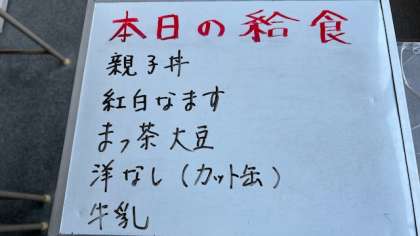 本日の給食
親子丼
紅白なます
まっ茶大豆
洋なし(カット缶)
牛乳